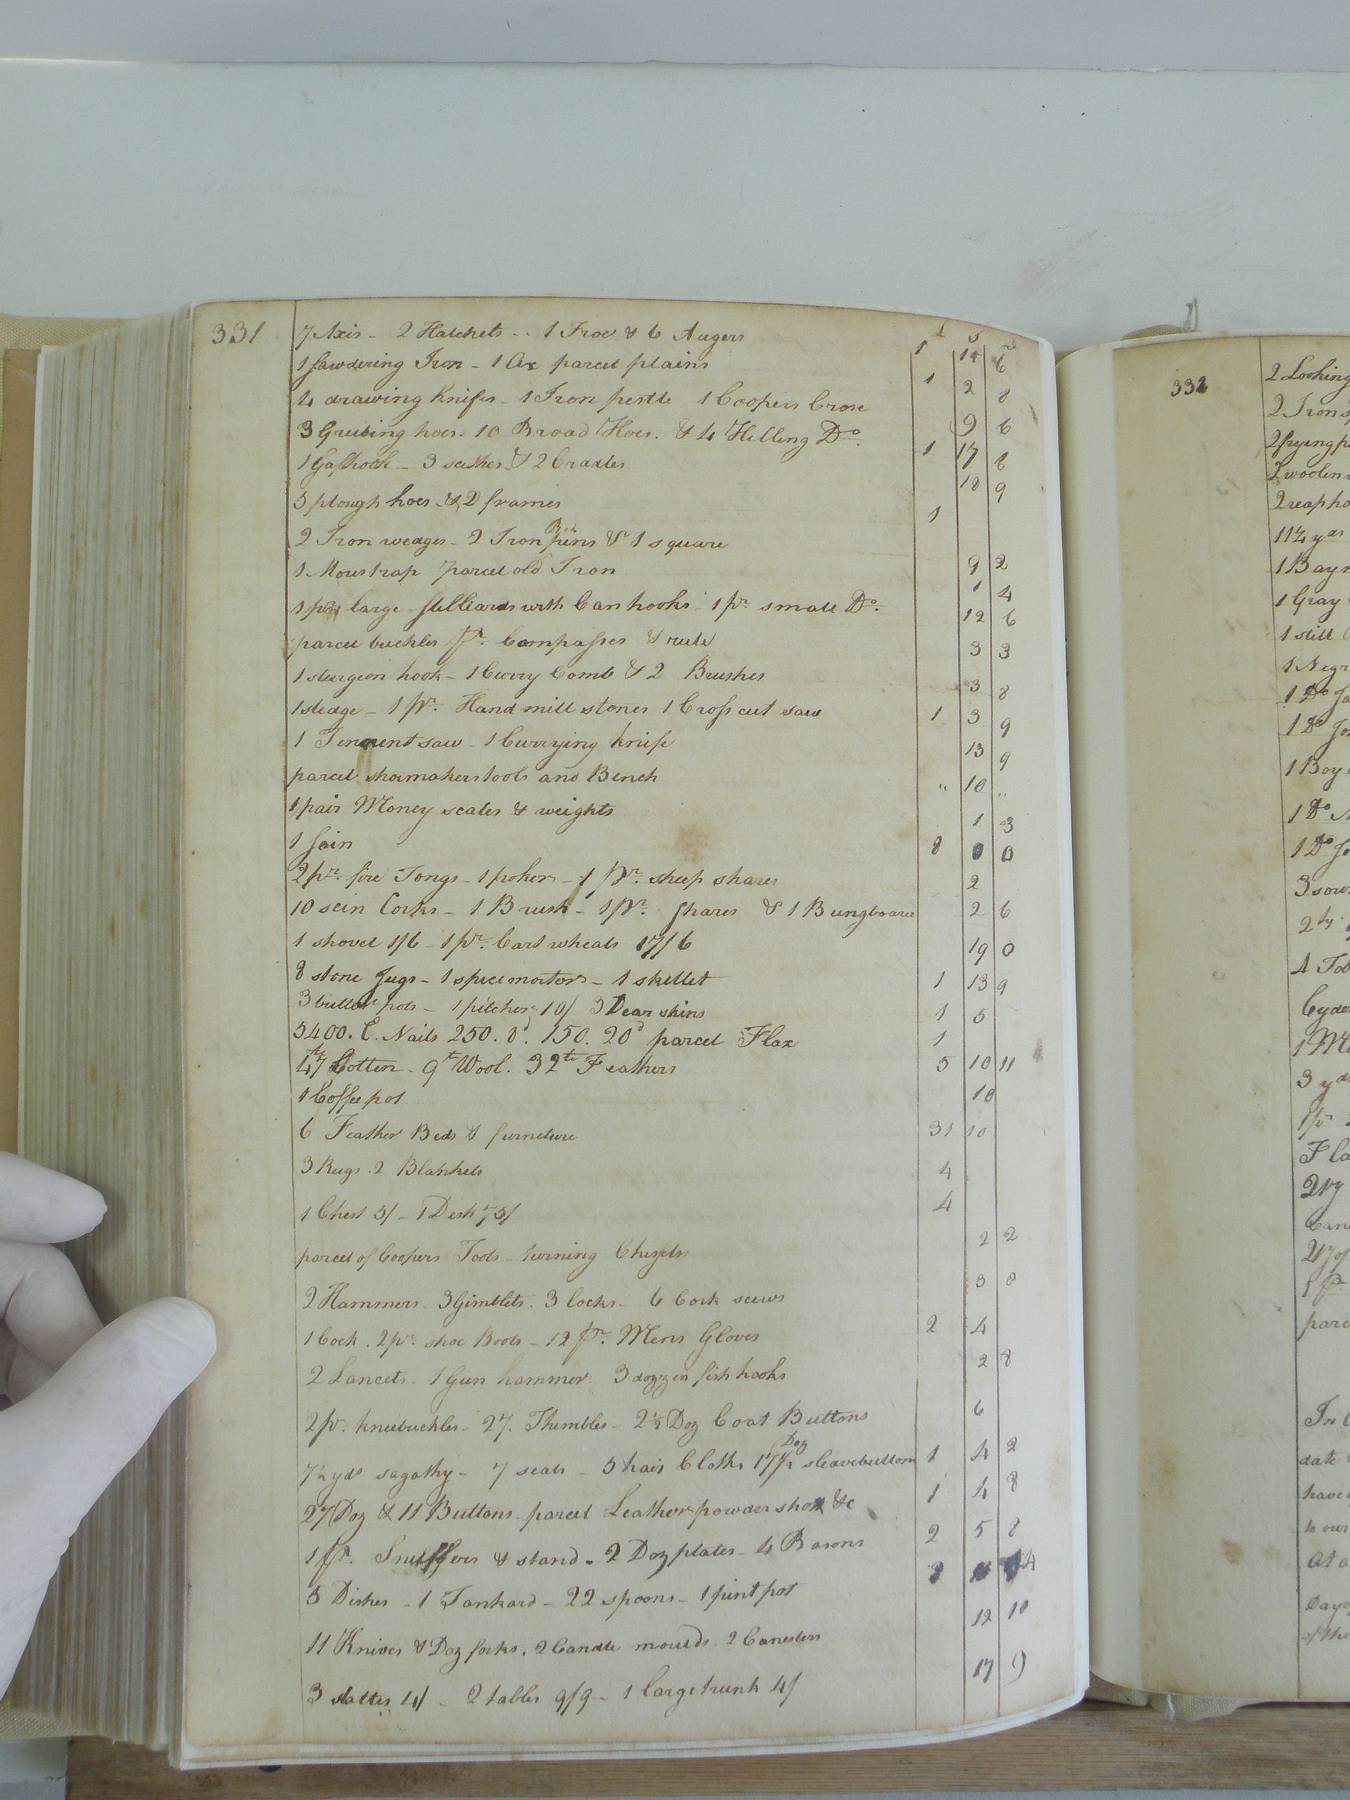 331
£ s d
7 Axis - 2 Hatchets - 1 Froe & 6 Augers 1 14 6
1 Sawdering Iron - 1 Ax parcel plains 1 2 8
4 drawing Knifes - 1 Iron pestle 1 Coopers Crose 9 6
3 Grubing hoes. 10 Broad Hoes. & 4 Hilling Do. 1 17 8
1 Gaffhook - 3 sithes & 2 Cradles 18 9
5 plough hoes & 2 frames 1
2 Iron wedges - 2 Iron Box pins & 1 square 9 2
1 Mous trap parcel old Iron 1 4
1 pr large Stilliards with Can hooks 1 pr. small Do. 12 6
parcel buckles pr. Compasses & rule 3 3
1 sturgeon hook - 1 Curry Comb & 2 Brushes 3 8
1 sledge - 1 pr. Hand mill stones 1 Cross cut saw 1 3 9
1 Tennent saw - 1 Currying Knife 13 9
parcel shoemakers tools and Bench " 10 "
1 pair Money scales & weights 1 3
1 Sain 8 0 0
2 pr. fire Tongs - 1 poker - 1 pr. sheep shares 2
10 sein Corks - 1 Brush - 1 pr. Shares & 1 Bungboard 2 6
1 shovel 1/6 - 1 pr. Cart wheals 17/6 19 0
8 stone Jugs - 1 spice mortor - 1 skillet 1 13 9
3 butter pots - 1 pitcher 10/ 3 Dear skins 1 5
5400. C. Nails 250. 8d. 150. 20d parcel Flax 1
47 Cotton - 9 Wool. 32 Feathers 5 10 11
1 Coffee pot 10
6 Feather Beds & furneture 31 10
3 Rugs . 2 Blankets 4
1 Chest 5/ - 1 Desk 75/ 4
parcel of Coopers Tools - turning Chizels 2 2
2 Hammers. 3 Gimblets. 3 locks - 6 Cork scrws 3 8
1 Cock . 2 pr. shoe Boots - 12 pr. Mens Gloves 2 4
2 Lancets. 1 Gun hammer. 3 dozzen fish hooks 2 8
2 pr. kneebuckles - 27. Thimbles - 2½ Doz Coat Buttons 6
7½ yds sagathy - 7 seals - 5 hair Cloths 17½ Doz sleavebuttons 1 4 2
27 Doz & 11 Buttons parcel Leather powder shott &c 1 4 8
1 pr. Snuffers & stand - 2 Doz plates - 4 Basons 2 5 8
5 Dishes - 1 Tankard - 22 spoons - 1 pint pot 4
11 Knives & Doz forks. 2 Candle moulds. 2 Canesters 12 10
3 slattes 4/ - 2 tables 9/9 - 1 large trunk 4/ 17 9
332
2 Looking
2 Iron
2 frying p
2 woolen
2 reap ho
11¼ yds
1 Bay
1 Gray
1 still
1 Negr
1 Do Ja
1 Do
1 Boy
1 Do
1 Do
3 sow
4 Tob
Cyder
3 yds
Fla
parc
date
have
to our
At a
Day
of the